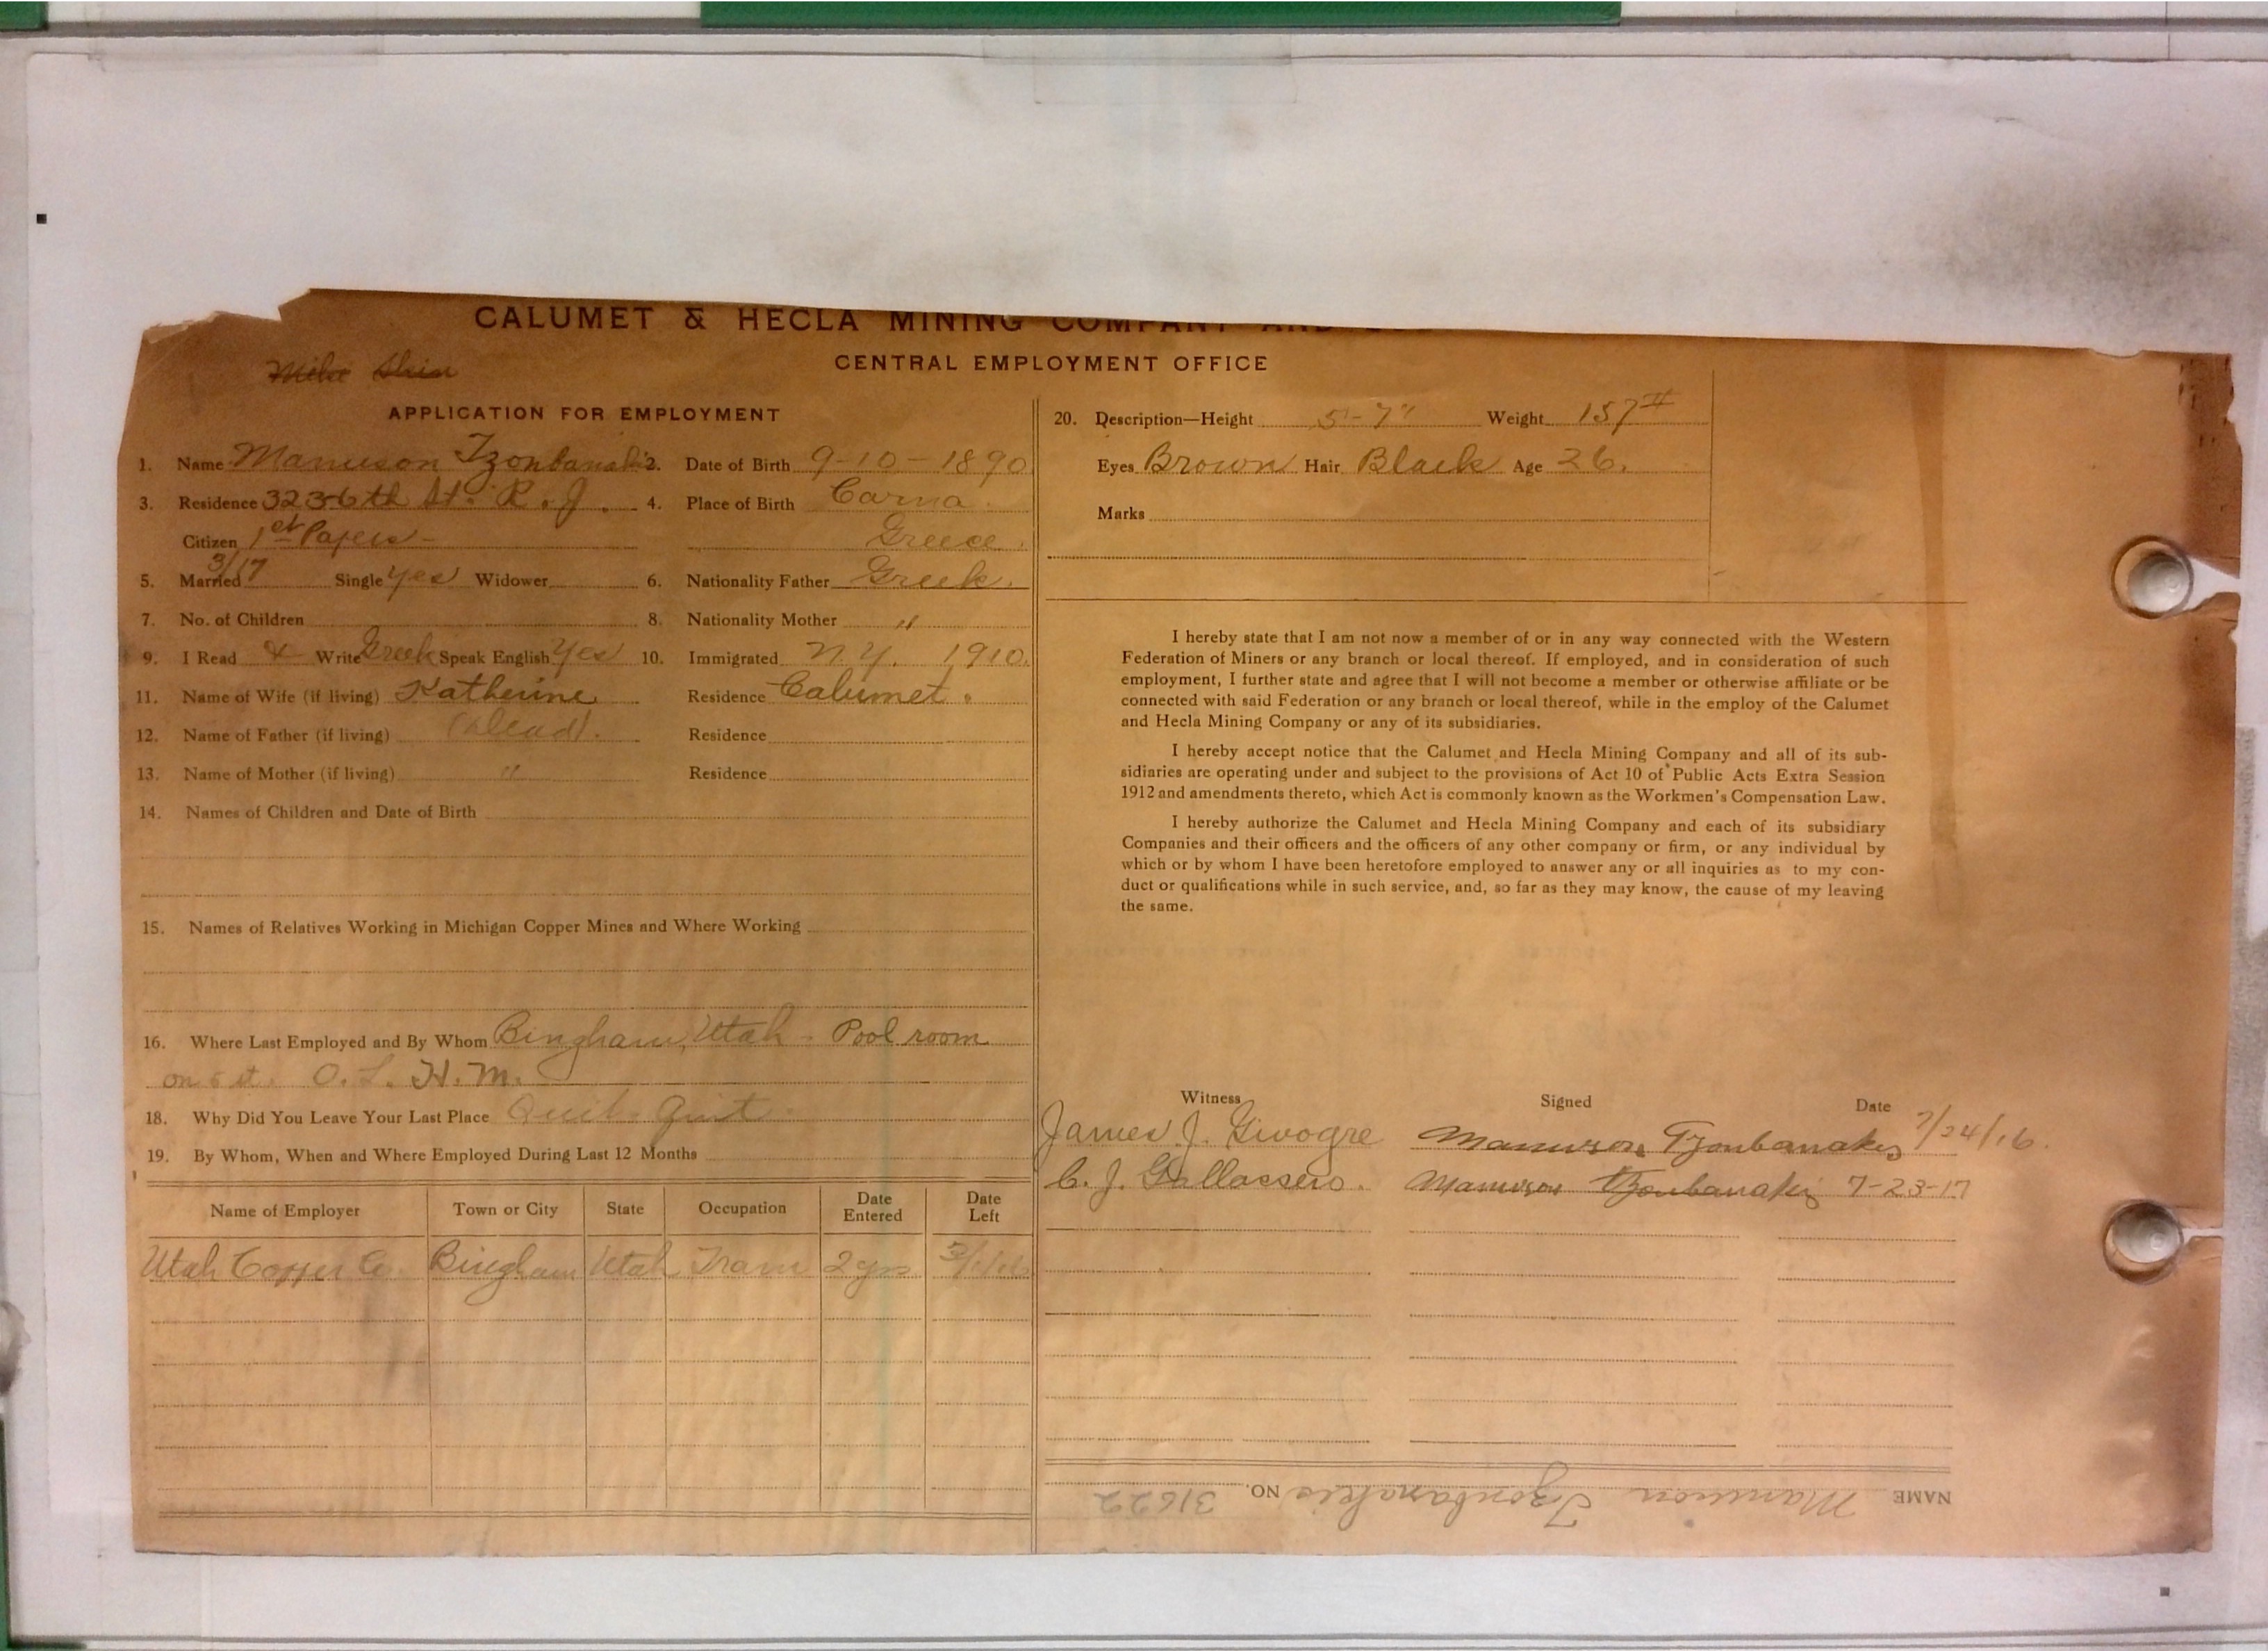 CALUMET & HECLA MINING COMPANY AND
CENTRAL EMPLOYMENT OFFICE
APPLICATION FOR EMPLOYMENT
1. Name Manuson Tzonbanakis 2. Date of Birth 9-10-1890
3. Residence 323-6th St. R. J. 4. Place of Birth Carna
Citizen 1st Papers - Greece.
5. Married 3/17 Single yes Widower 6. Nationality Father Greek.
7. No. of Children 8. Nationality Mother "
9. I Read & Write Greek Speak English Yes 10. Immigrated N.Y. 1910.
11. Name of Wife (if living) Katherine Residence Calumet.
12. Name of Father (if living) (Dead). Residence
13. Name of Mother (if living) " Residence
14. Names of Children and Date of Birth
15. Names of Relatives Working in Michigan Copper Mines and Where Working
16. Where Last Employed and By Whom Bingham, Utah - Pool room
on 5 st. O. L. H. M.
18. Why Did You Leave Your Last Place Quit. Quit
19. By Whom, When and Where Employed During Last 12 Months
Name of Employer Town or City State Occupation Date Entered Date Left
Utah Copper Co. Bingham Utah Tram 2 yrs
20. Description—Height 5-7" Weight 157#
Eyes Brown Hair Black Age 26.
Marks
I hereby state that I am not now a member of or in any way connected with the Western
Federation of Miners or any branch or local thereof. If employed, and in consideration of such
employment, I further state and agree that I will not become a member or otherwise affiliate or be
connected with said Federation or any branch or local thereof, while in the employ of the Calumet
and Hecla Mining Company or any of its subsidiaries.
I hereby accept notice that the Calumet and Hecla Mining Company and all of its sub-
sidiaries are operating under and subject to the provisions of Act 10 of Public Acts Extra Session
1912 and amendments thereto, which Act is commonly known as the Workmen's Compensation Law.
I hereby authorize the Calumet and Hecla Mining Company and each of its subsidiary
Companies and their officers and the officers of any other company or firm, or any individual by
which or by whom I have been heretofore employed to answer any or all inquiries as to my con-
duct or qualifications while in such service, and, so far as they may know, the cause of my leaving
the same.
Witness Signed Date
James J. Givogre Manuson Tzonbanakis 7/24/16.
C. J. Manuson Tzonbanakis 7-23-17
NAME Manuson Tzonbanakis NO. 31622